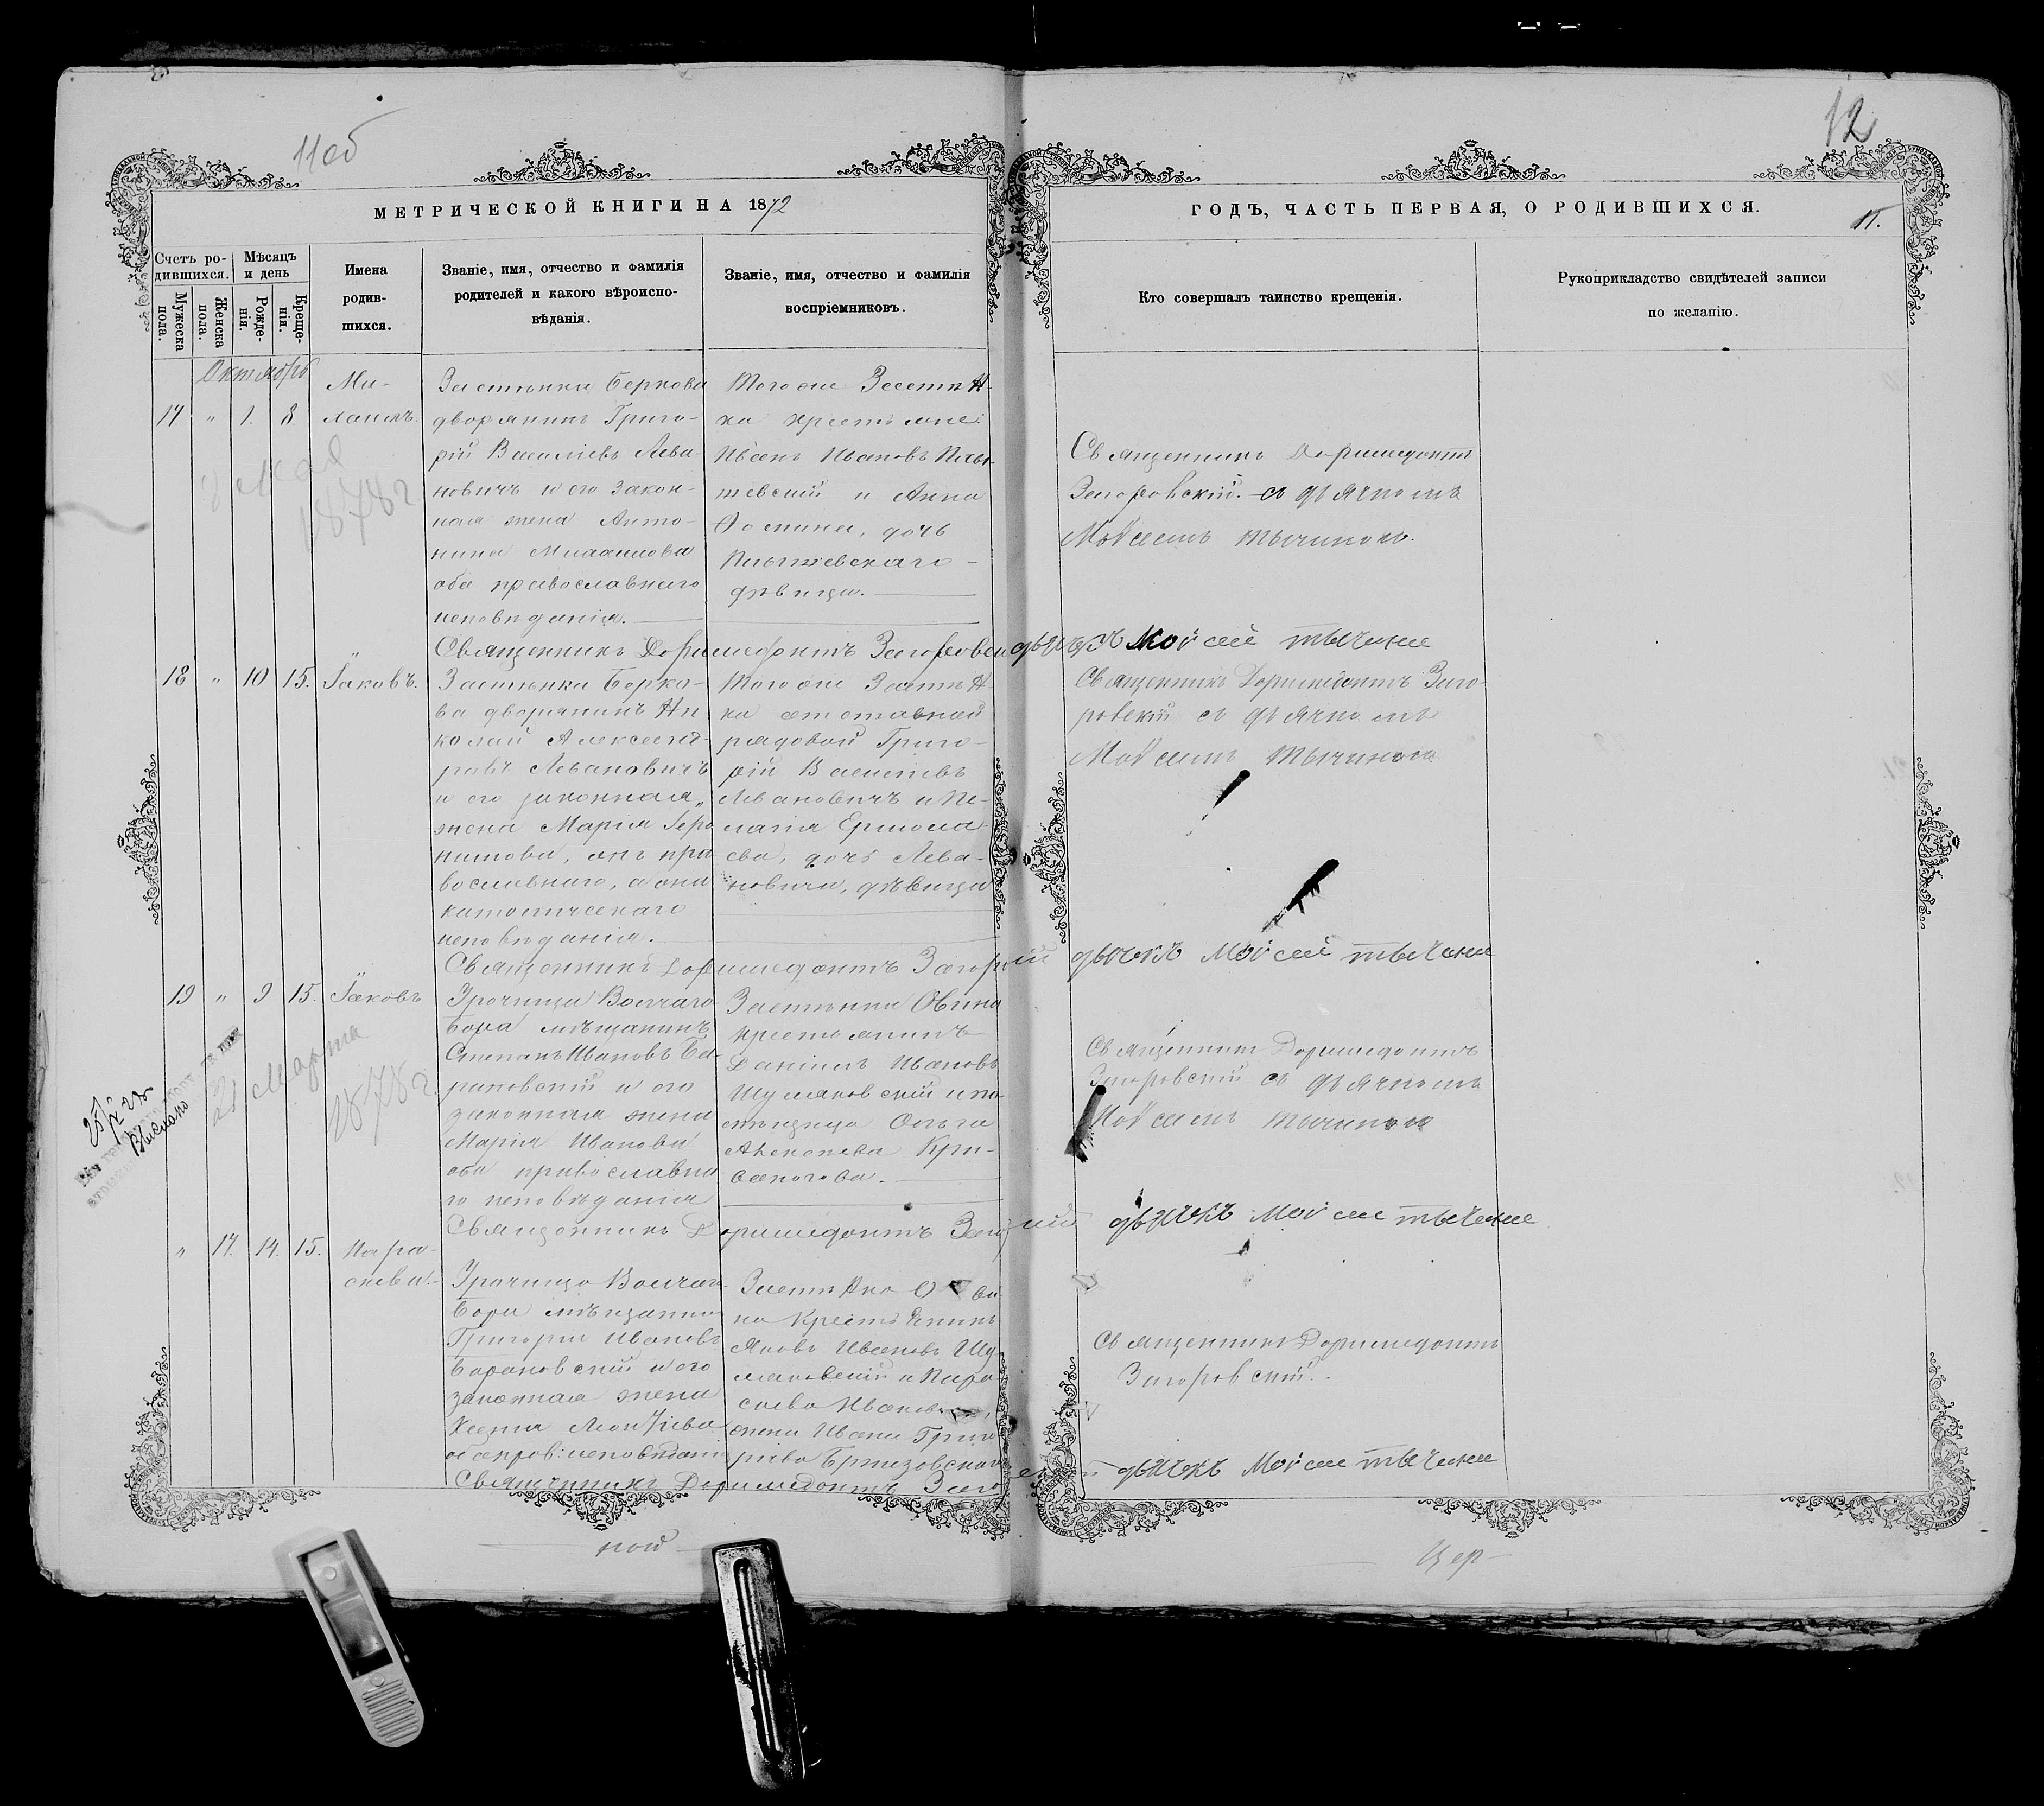 11об
12
МЕТРИЧЕСКОЙ КНИГИ НА 1872
ГОДЪ, ЧАСТЬ ПЕРВАЯ, О РОДИВШИХСЯ.
11.
Счетъ ро-
дившихся.
Мужеска
пола.
Женска
пола.
Мѣсяцъ
и день
Рожде-
нія.
Креще-
нія.
Имена
родив-
шихся.
Званіе, имя, отчество и фамилія
родителей и какого вѣроиспо-
вѣданія.
Званіе, имя, отчество и фамилія
воспріемниковъ.
Кто совершалъ таинство крещенія.
Рукоприкладство свидѣтелей записи
по желанію.
Октябрь
17 " 1. 8.
Ми-
хаилъ.
Застѣнка Беркова
дворянинъ Григо-
рій Василіевъ Лева-
новичъ и его закон-
ная жена Анто-
нина Михаилова
оба православнаго
исповѣданія.
Тогоже Застѣн-
ка крестьяне:
Иванъ Ивановъ
и Анна
Фомина, дочь
дѣвица.
Священникъ Доримедонтъ
Загоровскій. съ дьячкомъ
Моѵсеемъ Тычиною.
8 Мая
1878 г
Священникъ Доримедонтъ Загоровскій дьячекъ Моѵсей Тычина
18 " 10 15.
Іаковъ.
Застѣнка Берко-
ва дворянинъ Ни-
колай Александ-
ровъ Левановичъ
и его законная
жена Марія Іеро
нимова, онъ пра-
вославнаго, а она
католическаго
исповѣданія.
Тогоже Застѣн-
ка отставной
рядовой Григо-
рій Василіевъ
Левановичъ и Пе-
лагія Ермола-
ева, дочь Лева-
новича, дѣвица
Священникъ Доримедонтъ Заго-
ровскій съ дьячкомъ
Моѵсеемъ Тычиною
Священникъ Доримедонтъ Загоровскій дьячекъ Моѵсей Тычина
19 " 9 15.
Іаковъ
Урочища Волчаго
бора мѣщанинъ
Степанъ Ивановъ Ба-
рановскій и его
законная жена
Марія Иванова
оба православна
го исповѣданія
Застѣнка Овина
крестьянинъ
Даніилъ Ивановъ
Шумаковскій и по-
Ольга
Алексеева
Священникъ Доримедонтъ
Загоровскій съ дьячкомъ
Моѵсеемъ Тычиною
21 Марта
1878 г.
Выписано
Священникъ Доримедонтъ Загоровскій дьячекъ Моѵсей Тычина
" 17. 14. 15.
Пара-
скева.
Урочища Волчаго
бора мѣщанинъ
Григорій Ивановъ
Барановскій и его
законная жена
Ксенія Леонтіева
оба прав: исповѣданія
Застѣнка Ови
на Крестьянинъ
Яковъ Ивановъ Шу-
маковскій и Пара-
скева Иванова,
жена Ивана Григо
ріева
Священникъ Доримедонтъ
Загоровскій.
Священникъ Доримедонтъ Загоровскій дьячекъ Моѵсей Тычина
ной
Цер-